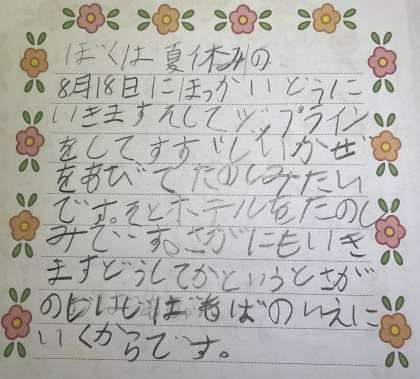 ぼくは夏休みの
8月18日にほっかいどうに
いきますそしてジップライン
をしてすずしいかぜ
をあびてたのしみたい
です。そとホテルをたのし
みです。さがにもいき
ますどうしてかというとさが
のじいじばあばのいえに
いくからです。